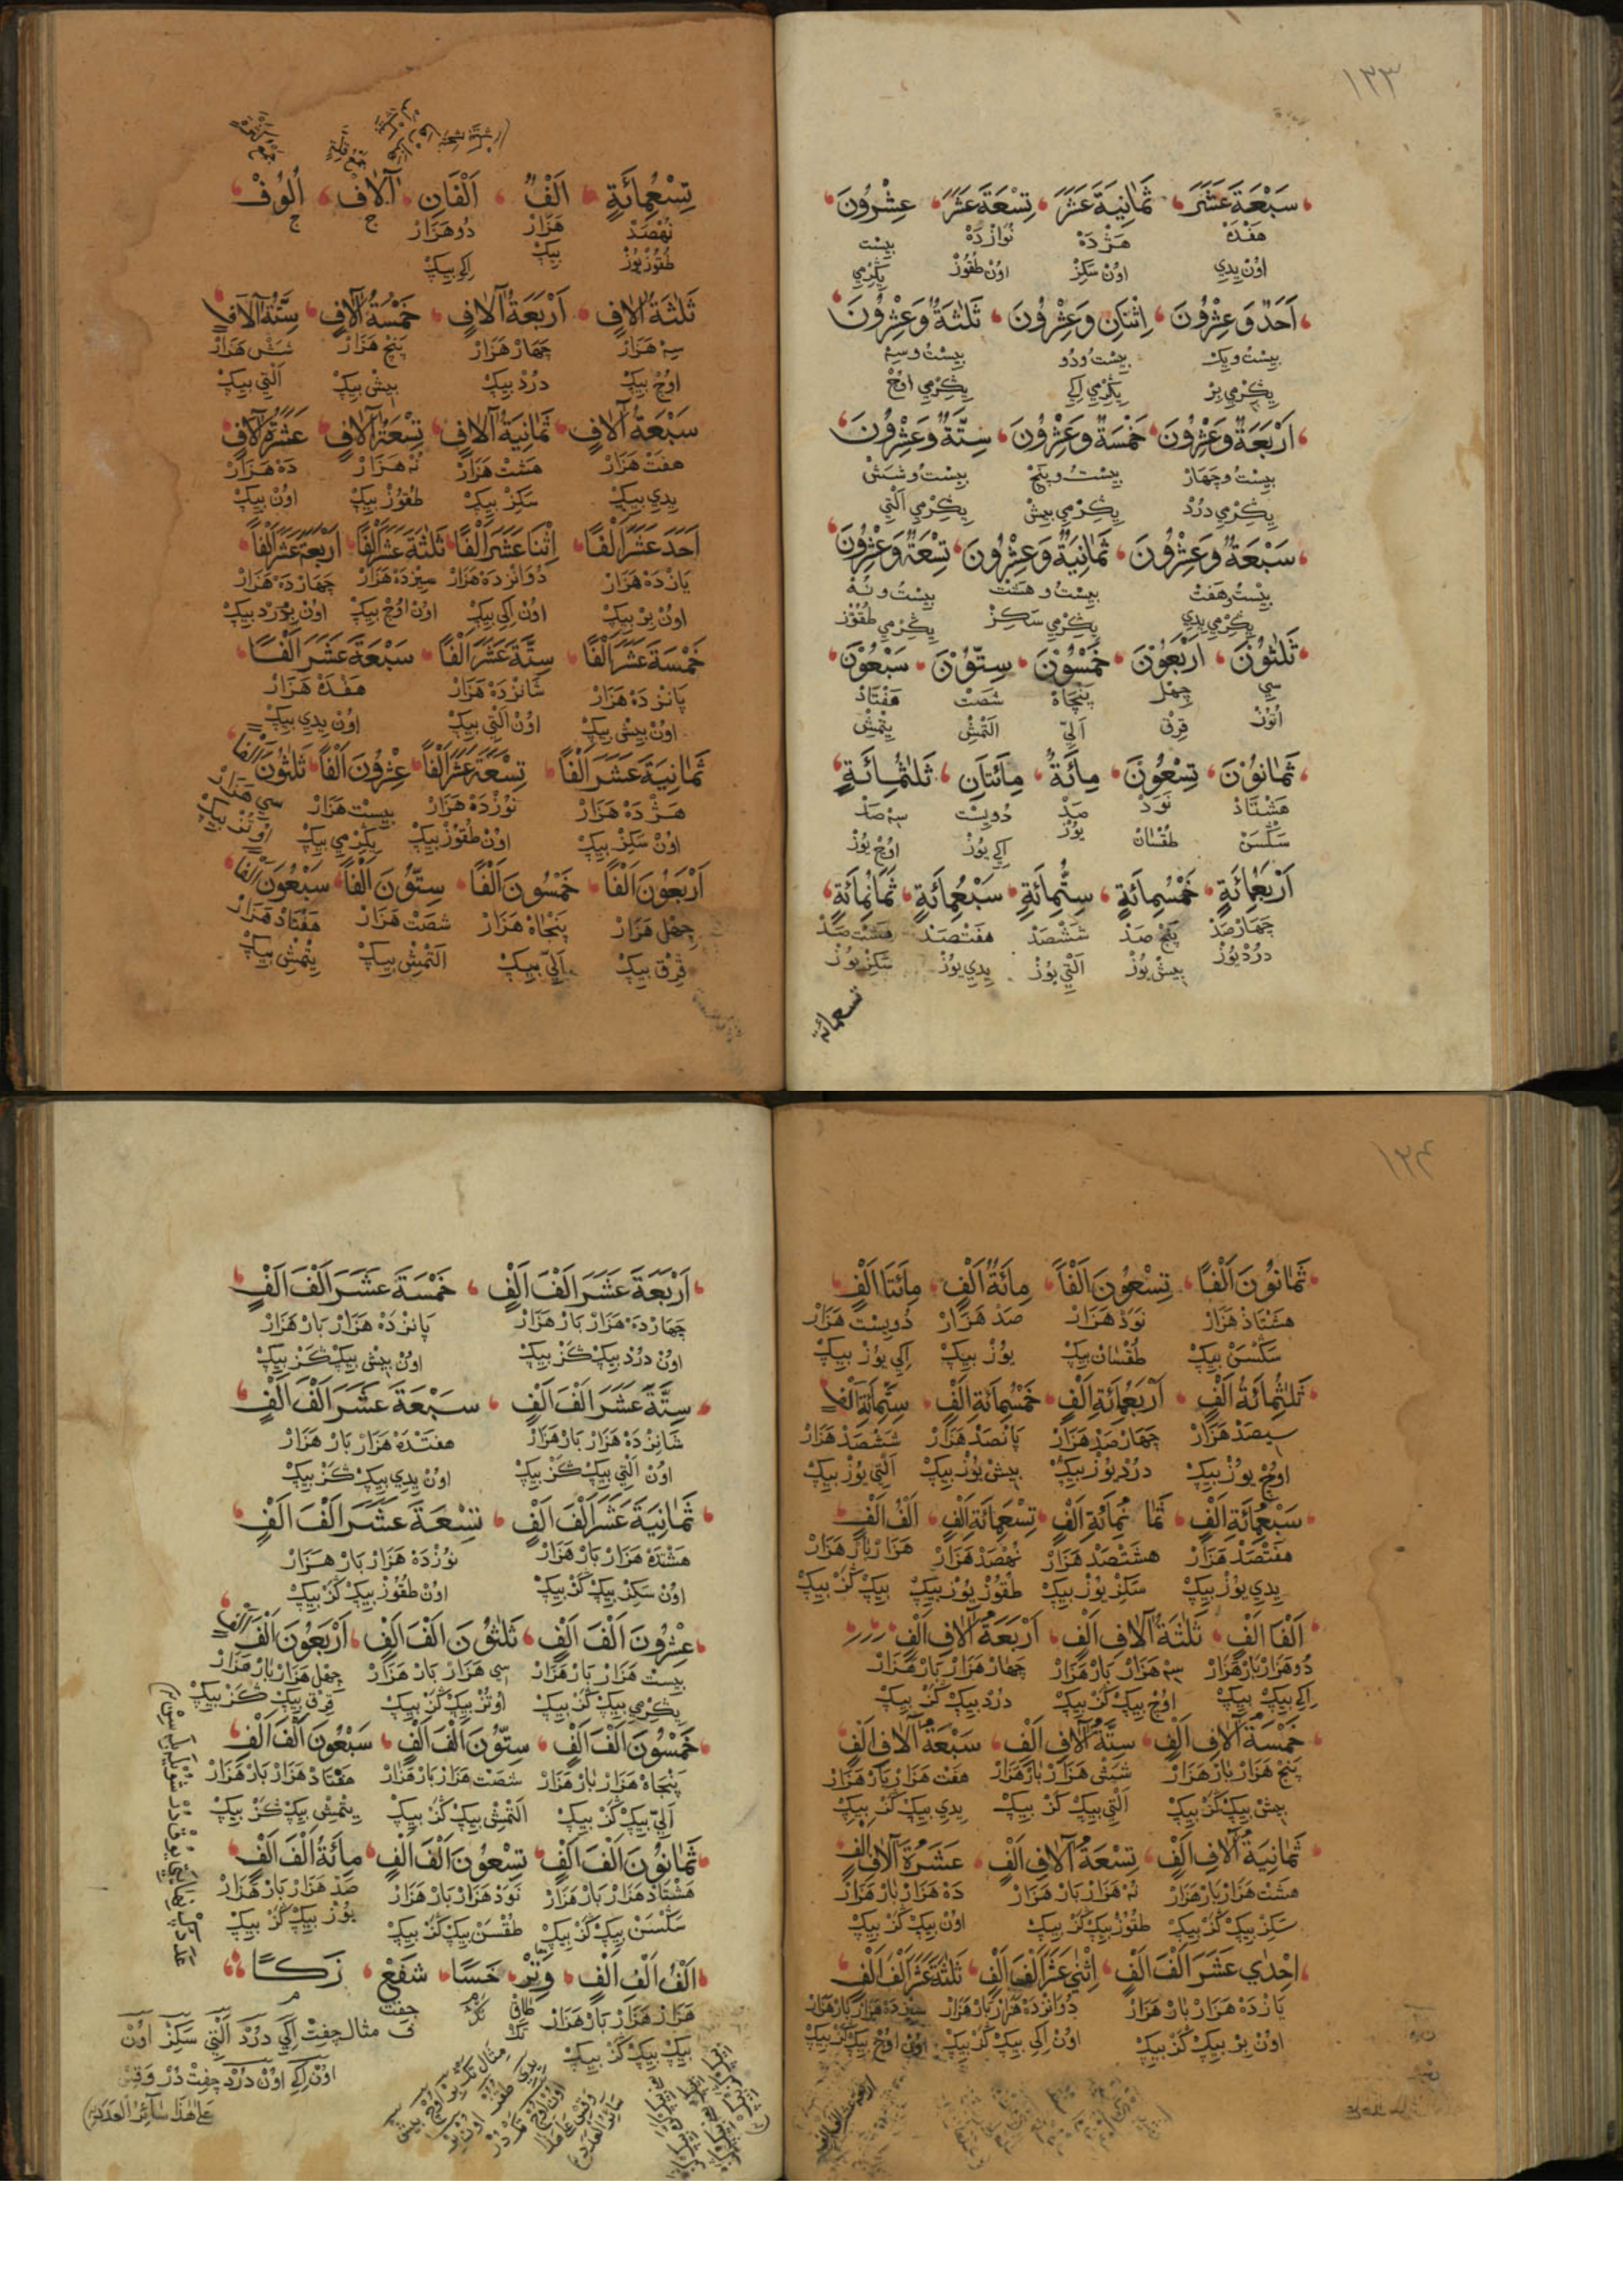 ١٣٣
سَبْعَةَ عَشَرَ ثَمَانِيَةَ عَشَرَ تِسْعَةَ عَشَرَ عِشْرُونَ
هفده هژده نوازده بیست
اون یدي اون سکز اون طقوز یکرمي
اَحَدٌ وَعِشْرُونَ اِثْنَانِ وَعِشْرُونَ ثَلٰثَةٌ وَعِشْرُونَ
بیست ویک بیست ودو بیست وسه
یکرمي بر یکرمي اکي یکرمي اوج
اَرْبَعَةٌ وَعِشْرُونَ خَمْسَةٌ وَعِشْرُونَ سِتَّةٌ وَعِشْرُونَ
بیست وچهار بیست وپنج بیست وشش
یکرمي درد یکرمي بیش یکرمي التي
سَبْعَةٌ وَعِشْرُونَ ثَمَانِيَةٌ وَعِشْرُونَ تِسْعَةٌ وَعِشْرُونَ
بیست وهفت بیست وهشت بیست ونه
یکرمي یدي یکرمي سکز یکرمي طقوز
ثَلٰثُونَ اَرْبَعُونَ خَمْسُونَ سِتُّونَ سَبْعُونَ
سي چهل پنجاه شصت هفتاد
اتوز قرق اللي التمش یتمش
ثَمَانُونَ تِسْعُونَ مِائَةٌ مِائَتَانِ ثَلٰثُمِائَةٍ
هشتاد نود صد دویست سه صد
سکسن طقسان یوز اکي یوز اوج یوز
اَرْبَعُمِائَةٍ خَمْسُمِائَةٍ سِتُّمِائَةٍ سَبْعُمِائَةٍ ثَمَانُمِائَةٍ
چهار صد پنج صد ششصد هفتصد هشت صد
درد یوز بیش یوز التي یوز یدي یوز سکز یوز
تسعمائة
تِسْعُمِائَةٍ اَلْفٌ اَلْفَانِ اٰلَافٌ اُلُوفٌ
نهصد هزار دو هزار ج ج
طقوز یوز بیک اکي بیک
ثَلٰثَةُ اٰلَافٍ اَرْبَعَةُ اٰلَافٍ خَمْسَةُ اٰلَافٍ سِتَّةُ اٰلَافٍ
سه هزار چهار هزار پنج هزار شش هزار
اوج بیک درد بیک بیش بیک التي بیک
سَبْعَةُ اٰلَافٍ ثَمَانِيَةُ اٰلَافٍ تِسْعَةُ اٰلَافٍ عَشَرَةُ اٰلَافٍ
هفت هزار هشت هزار نه هزار ده هزار
یدي بیک سکز بیک طقوز بیک اون بیک
اَحَدَ عَشَرَ اَلْفًا اِثْنَا عَشَرَ اَلْفًا ثَلٰثَةَ عَشَرَ اَلْفًا اَرْبَعَةَ عَشَرَ اَلْفًا
یازده هزار دوانزده هزار سیزده هزار چهارده هزار
اون بر بیک اون اکي بیک اون اوج بیک اون درد بیک
خَمْسَةَ عَشَرَ اَلْفًا سِتَّةَ عَشَرَ اَلْفًا سَبْعَةَ عَشَرَ اَلْفًا
پانزده هزار شانزده هزار هفده هزار
اون بیش بیک اون التي بیک اون یدي بیک
ثَمَانِيَةَ عَشَرَ اَلْفًا تِسْعَةَ عَشَرَ اَلْفًا عِشْرُونَ اَلْفًا ثَلٰثُونَ اَلْفًا
هژده هزار نوزده هزار بیست هزار سي هزار
اون سکز بیک اون طقوز بیک یکرمي بیک اوتز بیک
اَرْبَعُونَ اَلْفًا خَمْسُونَ اَلْفًا سِتُّونَ اَلْفًا سَبْعُونَ اَلْفًا
چهل هزار پنجاه هزار شصت هزار هفتاد هزار
قرق بیک اللي بیک التمش بیک یتمش بیک
١٣٤
ثَمَانُونَ اَلْفًا تِسْعُونَ اَلْفًا مِائَةُ اَلْفٍ مِائَتَا اَلْفٍ
هشتاد هزار نود هزار صد هزار دویست هزار
سکسن بیک طقسان بیک یوز بیک اکي یوز بیک
ثَلٰثُمِائَةِ اَلْفٍ اَرْبَعُمِائَةِ اَلْفٍ خَمْسُمِائَةِ اَلْفٍ سِتُّمِائَةِ اَلْفٍ
سیصد هزار چهار صد هزار پانصد هزار ششصد هزار
اوج یوز بیک درد یوز بیک بیش یوز بیک التي یوز بیک
سَبْعُمِائَةِ اَلْفٍ ثَمَا نُمِائَةِ اَلْفٍ تِسْعُمِائَةِ اَلْفٍ اَلْفُ اَلْفٍ
هفتصد هزار هشتصد هزار نهصد هزار هزار بار هزار
یدي یوز بیک سکز یوز بیک طقوز یوز بیک بیک کز بیک
اَلْفَا اَلْفٍ ثَلٰثَةُ اٰلَافِ اَلْفٍ اَرْبَعَةُ اٰلَافِ اَلْفٍ
دو هزار بار هزار سه هزار بار هزار چهار هزار بار هزار
اکي بیک بیک اوج بیک کز بیک درد بیک کز بیک
خَمْسَةُ اٰلَافِ اَلْفٍ سِتَّةُ اٰلَافِ اَلْفٍ سَبْعَةُ اٰلَافِ اَلْفٍ
پنج هزار بار هزار شش هزار بار هزار هفت هزار بار هزار
بیش بیک کز بیک التي بیک کز بیک یدي بیک کز بیک
ثَمَانِيَةُ اٰلَافِ اَلْفٍ تِسْعَةُ اٰلَافِ اَلْفٍ عَشَرَةُ اٰلَافِ اَلْفٍ
هشت هزار بار هزار نه هزار بار هزار ده هزار بار هزار
سکز بیک کز بیک طقوز بیک کز بیک اون بیک کز بیک
اِحْدٰي عَشَرَ اَلْفَ اَلْفٍ اِثْنٰي عَشَرَ اَلْفَ اَلْفٍ ثَلٰثَةَ عَشَرَ اَلْفَ اَلْفٍ
یازده هزار بار هزار دوانزده هزار بار هزار سیزده هزار بار هزار
اون بر بیک کز بیک اون اکي بیک کز بیک اون اوج بیک کز بیک
اَرْبَعَةَ عَشَرَ اَلْفَ اَلْفٍ خَمْسَةَ عَشَرَ اَلْفَ اَلْفٍ
چهارده هزار بار هزار پانزده هزار بار هزار
اون درد بیک کز بیک اون بیش بیک کز بیک
سِتَّةَ عَشَرَ اَلْفَ اَلْفٍ سَبْعَةَ عَشَرَ اَلْفَ اَلْفٍ
شانزده هزار بار هزار هفتده هزار بار هزار
اون التي بیک کز بیک اون یدي بیک کز بیک
ثَمَانِيَةَ عَشَرَ اَلْفَ اَلْفٍ تِسْعَةَ عَشَرَ اَلْفَ اَلْفٍ
هشتده هزار بار هزار نوزده هزار بار هزار
اون سکز بیک کز بیک اون طقوز بیک کز بیک
عِشْرُونَ اَلْفَ اَلْفٍ ثَلٰثُونَ اَلْفَ اَلْفٍ اَرْبَعُونَ اَلْفَ اَلْفٍ
بیست هزار بار هزار سي هزار بار هزار چهل هزار بار هزار
یکرمي بیک کز بیک اوتز بیک کز بیک قرق بیک کز بیک
خَمْسُونَ اَلْفَ اَلْفٍ سِتُّونَ اَلْفَ اَلْفٍ سَبْعُونَ اَلْفَ اَلْفٍ
پنجاه هزار بار هزار شصت هزار بار هزار هفتاد هزار بار هزار
اللي بیک کز بیک التمش بیک کز بیک یتمش بیک کز بیک
ثَمَانُونَ اَلْفَ اَلْفٍ تِسْعُونَ اَلْفَ اَلْفٍ مِائَةُ اَلْفَ اَلْفٍ
هشتاد هزار بار هزار نود هزار بار هزار صد هزار بار هزار
سکسن بیک کز بیک طقسن بیک کز بیک یوز بیک کز بیک
اَلْفُ اَلْفِ اَلْفٍ وَتْرٌ خَسَا شَفْعٌ زَكًا
هزار هزار بار هزار طاق تک جفت
بیک بیک بیک کز بیک تک
مثال جفت اکي درد التي سکز اون
اون اکي اون درد جفت در وقس
علي هذا سائر العدد